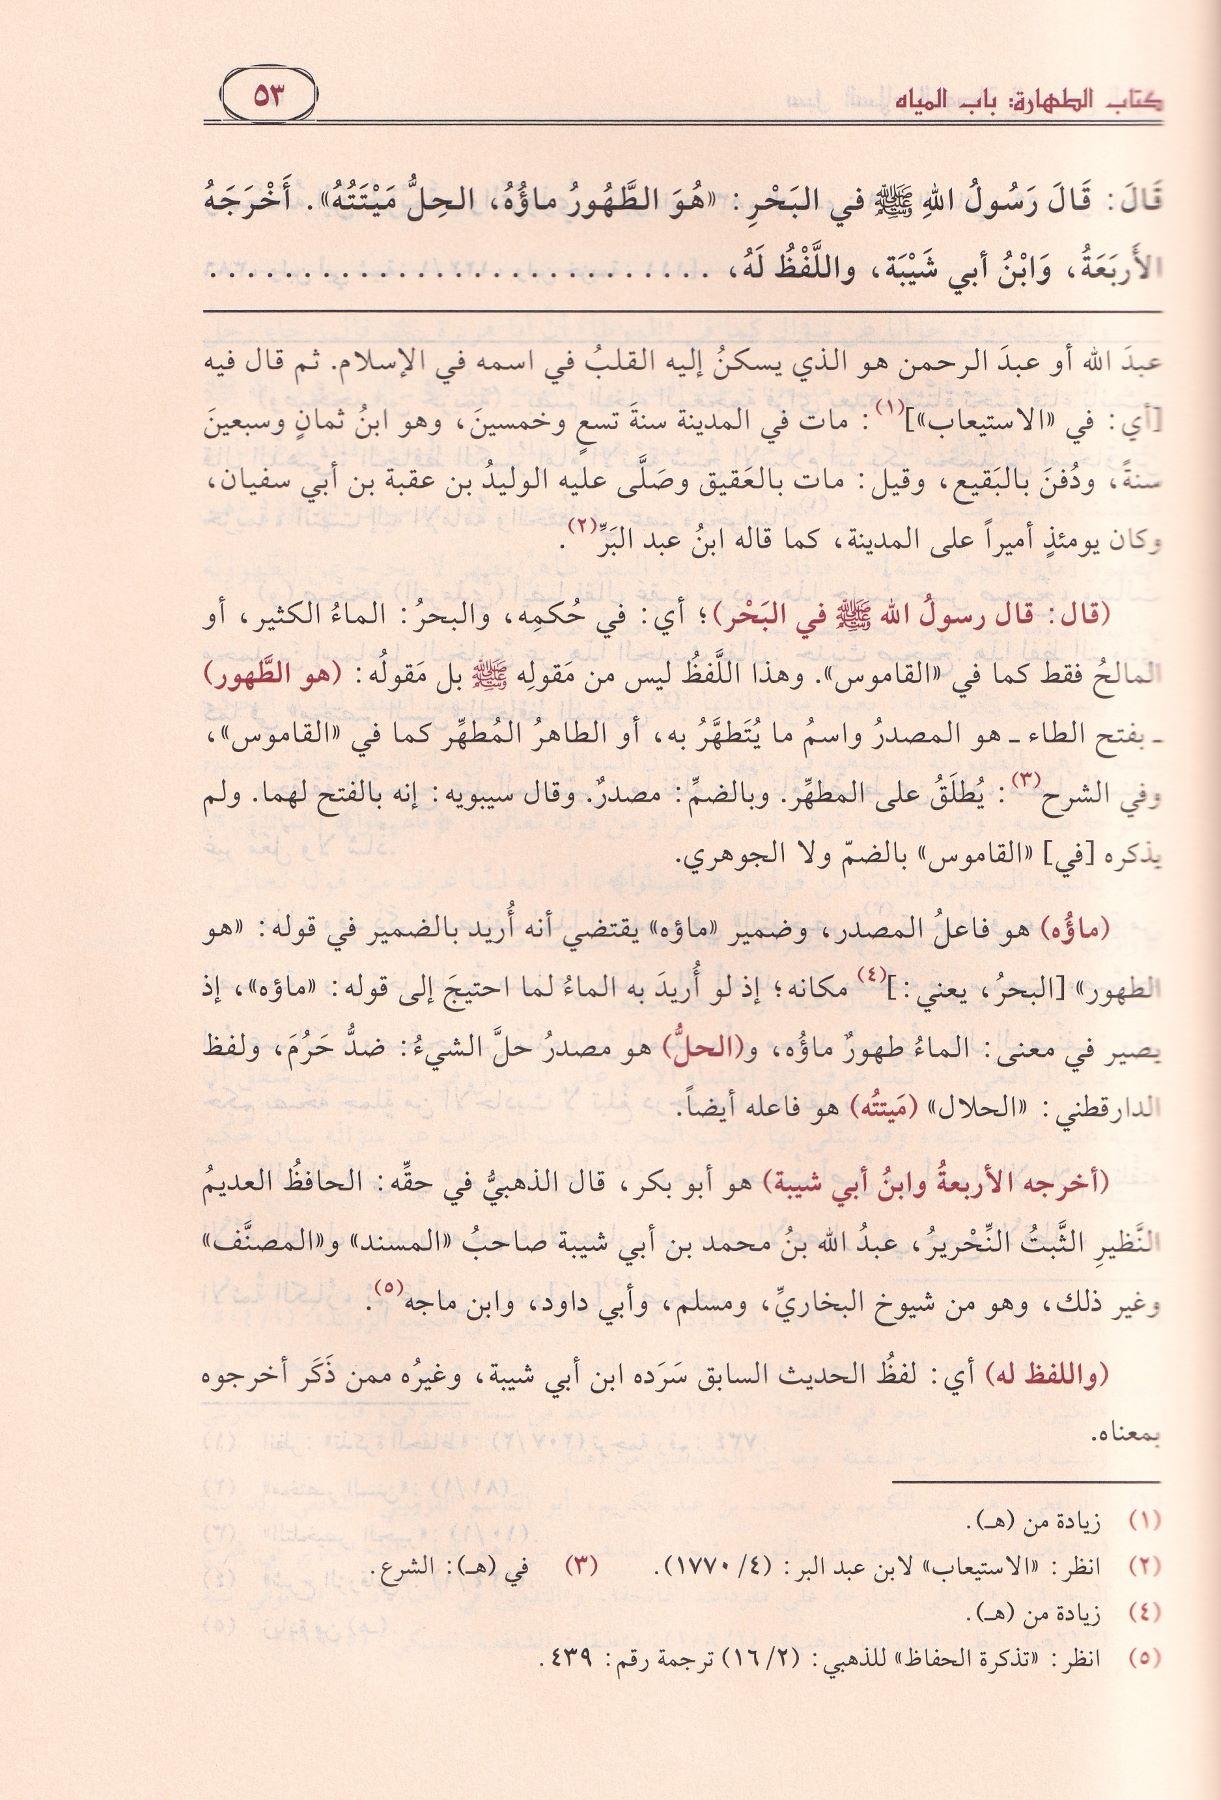 كتاب الطهارة: باب المياه
٥٣
قَالَ: قَالَ رَسُولُ اللهِ ﷺ في البَحْرِ: «هُوَ الطَّهُورُ ماؤُهُ، الحِلُّ مَيْتَتُهُ». أَخْرَجَهُ
الأَربَعَةُ، وَابْنُ أبي شَيْبَة، واللَّفْظُ لَهُ، . . . . . . . . . . . . . . . . . . . . . . . . . . .
عبدَ الله أو عبدَ الرحمن هو الذي يسكنُ إليه القلبُ في اسمه في الإسلام. ثم قال فيه
[أي: في «الاستيعاب»](١): مات في المدينة سنةَ تسعٍ وخمسينَ، وهو ابنُ ثمانٍ وسبعينَ
سنةً، ودُفنَ بالبَقيع، وقيل: مات بالعَقيق وصَلَّى عليه الوليدُ بن عقبة بن أبي سفيان،
وكان يومئذٍ أميراً على المدينة، كما قاله ابنُ عبد البَرِّ(٢).
(قال: قال رسولُ الله ﷺ في البَحْر)؛ أي: في حُكمِه، والبحرُ: الماءُ الكثير، أو
المالحُ فقط كما في «القاموس». وهذا اللَّفظُ ليس من مَقولِه ﷺ بل مَقولُه: (هو الطَّهور)
ـ بفتح الطاء ـ هو المصدرُ واسمُ ما يُتَطهَّرُ به، أو الطاهرُ المُطهِّر كما في «القاموس»،
وفي الشرح(٣): يُطلَقُ على المطهِّر. وبالضمِّ: مصدرٌ. وقال سيبويه: إنه بالفتح لهما. ولم
يذكره [في] «القاموس» بالضمّ ولا الجوهري.
(ماؤُه) هو فاعلُ المصدر، وضمير «ماؤه» يقتضي أنه أُريد بالضمير في قوله: «هو
الطهور» [البحرُ، يعني:](٤) مكانه؛ إذ لو أُريدَ به الماءُ لما احتيجَ إلى قوله: «ماؤه»، إذ
يصير في معنى: الماءُ طهورٌ ماؤُه، و(الحلُّ) هو مصدرُ حلَّ الشيءُ: ضدُّ حَرُمَ، ولفظ
الدارقطني: «الحلال» (مَيتتُه) هو فاعله أيضاً.
(أخرجه الأربعةُ وابنُ أبي شيبة) هو أبو بكر، قال الذهبيُّ في حقِّه: الحافظُ العديمُ
النَّظيرِ الثَّبتُ النِّحْريرُ، عبدُ الله بنُ محمد بن أبي شيبة صاحبُ «المسند» و«المصنَّف»
وغير ذلك، وهو من شيوخ البخاريِّ، ومسلم، وأبي داود، وابن ماجه(٥).
(واللفظ له) أي: لفظُ الحديث السابق سَرَده ابن أبي شيبة، وغيرُه ممن ذَكَر أخرجوه
بمعناه.
(١) زيادة من (هـ).
(٢) انظر: «الاستيعاب» لابن عبد البر: (٤/ ١٧٧٠). (٣) في (هـ): الشرع.
(٤) زيادة من (هـ).
(٥) انظر: «تذكرة الحفاظ» للذهبي: (١٦/٢) ترجمة رقم: ٤٣٩.